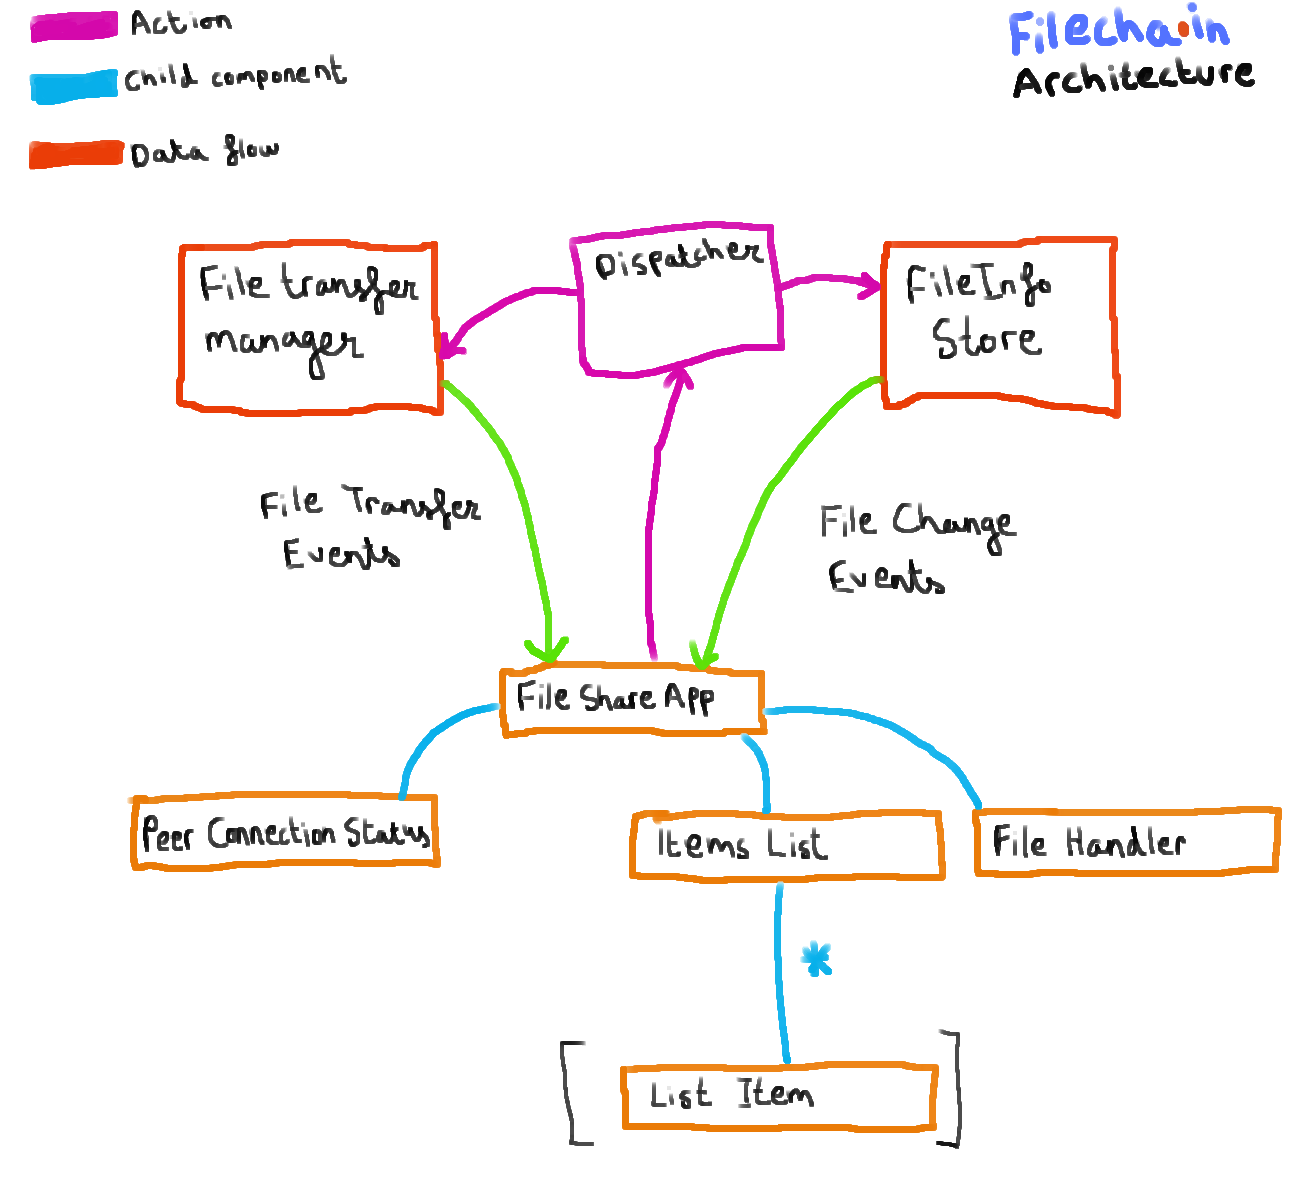 Action
Child component
Data flow
Filecha.in
Architecture
File transfer
manager
Dispatcher
FileInfo
Store
File Transfer
Events
File Change
Events
File Share App
Peer Connection Status
Items List
File Handler
*
[ List Item ]